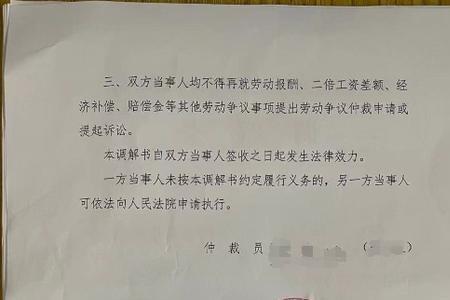 三、双方当事人均不得再就劳动报酬、二倍工资差额、经
济补偿、赔偿金等其他劳动争议事项提出劳动争议仲裁申请或
提起诉讼。
本调解书自双方当事人签收之日起发生法律效力。
一方当事人未按本调解书约定履行义务的，另一方当事人
可依法向人民法院申请执行。
仲 裁 员